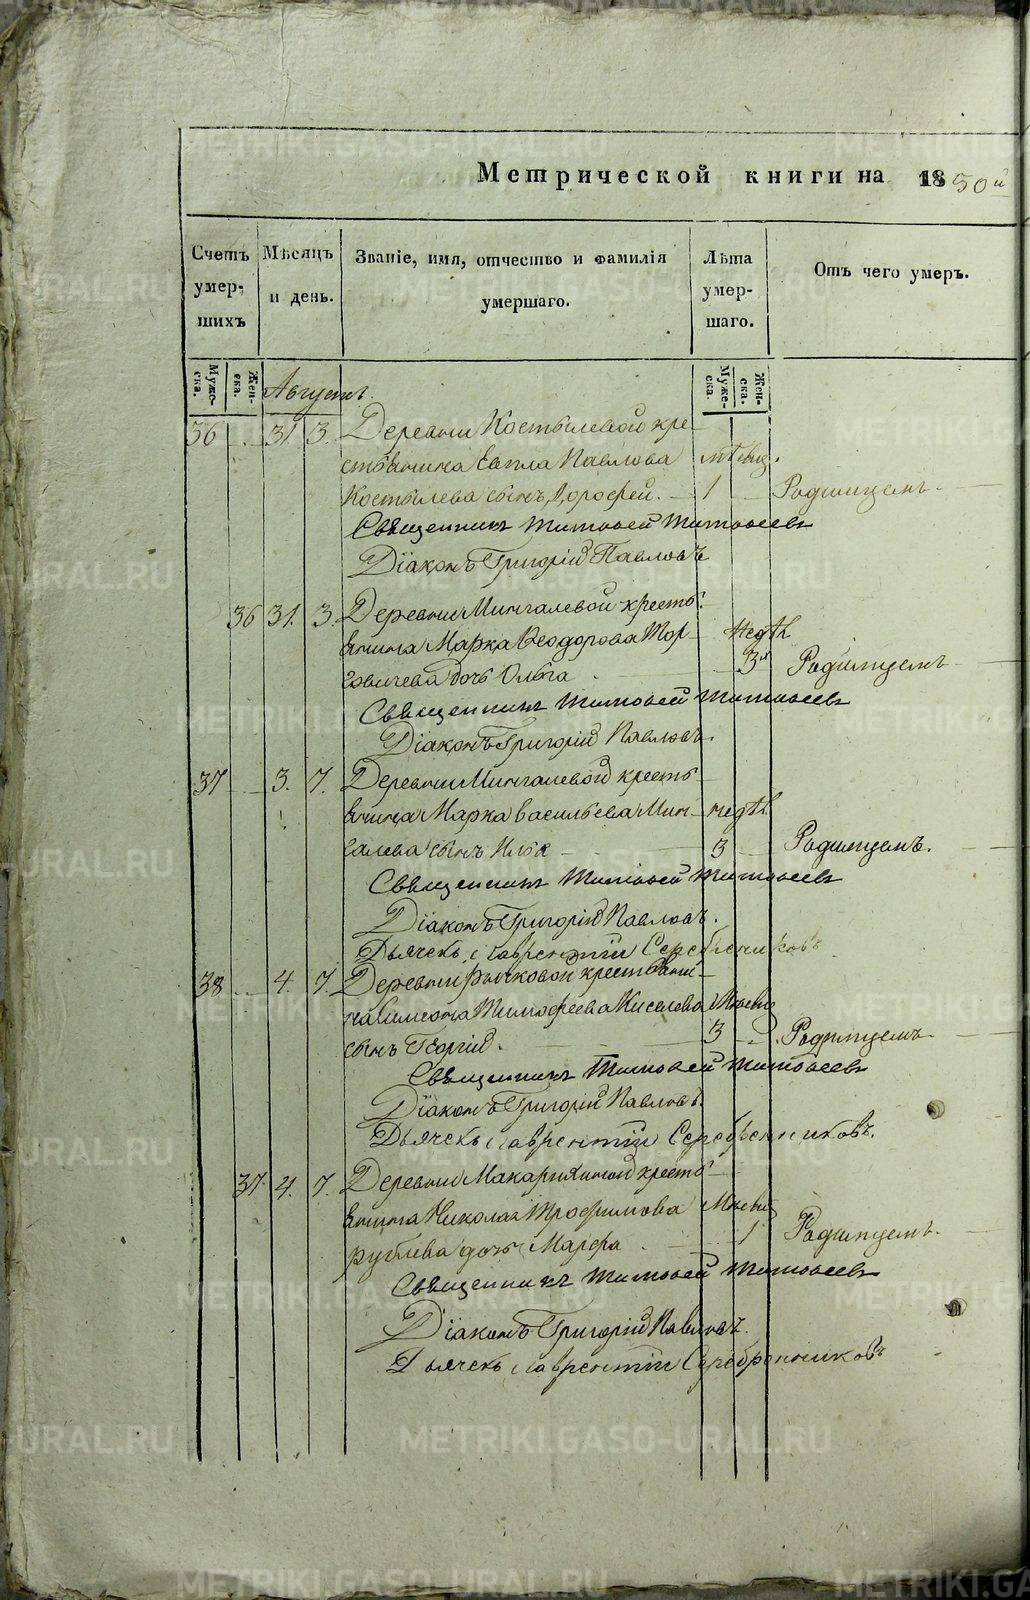 METRIKI.GASO-URAL.RU
Метрической книги на 1850й
Счетъ умер- шихъ
Мѣсяцъ и день.
Званіе, имя, отчество и фамилія умершаго.
Лѣта умер- шаго.
Отъ чего умеръ.
Муже- ска.
Жен- ска.
Августъ.
Муже- ска.
Жен- ска.
36 31 3. Деревни Костылевой кре-
стьянина Евпла Павлова мѣсяц.
Костылева сынъ Дорофей. 1 Родимцемъ
Священникъ Тимофей Тимофеевъ
Діаконъ Григорій Павловъ
36 31. 3. Деревни Мингалевой кресть-
янина Марка Ѳеодорова недѣл
дочь Ольга 3х Родимцемъ
Священникъ Тимофей Тимофеевъ
Діаконъ Григорій Павловъ.
37 3. 7. Деревни Мингалевой кресть-
янина Марка Васильева Мин- недѣл.
галева сынъ Илья 3 Родимцемъ.
Священникъ Тимофей Тимофеевъ
Діаконъ Григорій Павловъ.
Дьячекъ Лаврентій Серебрениковъ
38 4. 7. Деревни Рычковой крестьяни-
на Симеона Тимофеева Киселева
сынъ Георгій. 3 Родимцемъ
Священникъ Тимофей Тимофеевъ
Діаконъ Григорій Павловъ.
Дьячекъ Лаврентій Серебрениковъ.
37 4. 7. Деревни кресть-
янина Николая Трофимова
Рублева дочь Марфа 1 Родимцемъ.
Священникъ Тимофей Тимофеевъ
Діаконъ Григорій Павловъ.
Дьячекъ Лаврентій Серебрениковъ